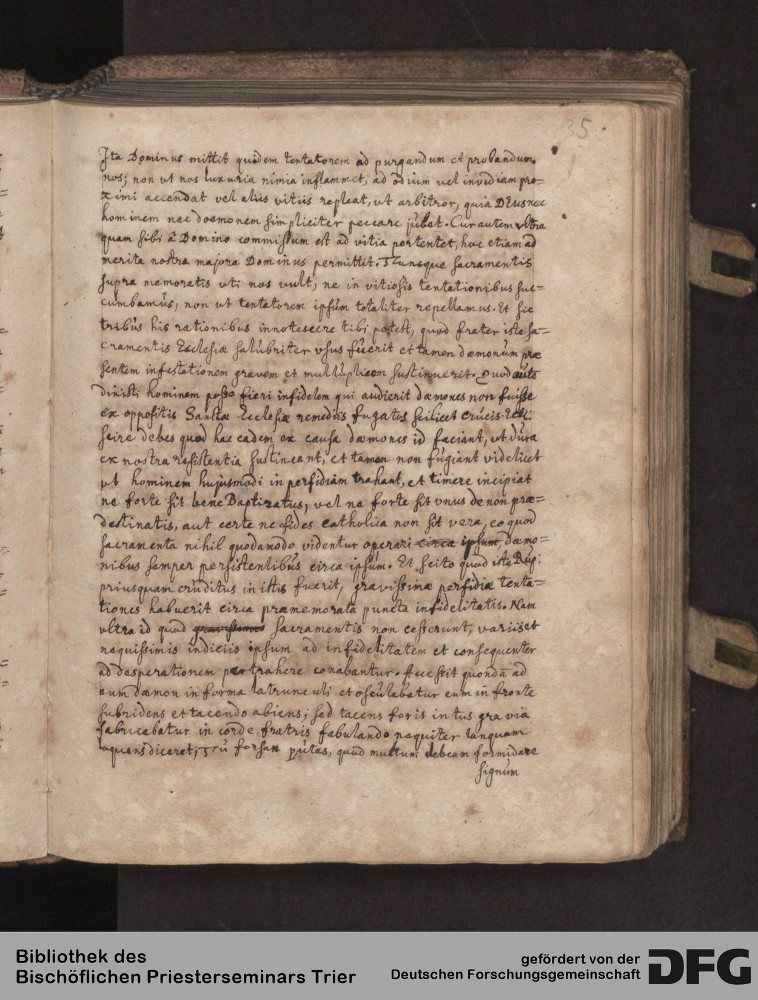 35.
Ita Dominus mittit quidem tentatorem ad purgandum et probandum
nos; non ut nos luxuria nimia inflammet, ad odium vel invidiam pro=
ximi accendat vel aliis vitiis repleat, ut arbitror, quia Deus nec
hominem nec doemonem simpliciter peccare jubet. Cur autem ultra
quam sibi à Domino commissum est ad vitia pertentet, hoc etiam ad
merita nostra majora Dominus permittit. Tuncque sacramentis
supra memoratis uti nos vult, ne in vitiosis tentationibus suc=
cumbamus, non ut tentatorem ipsum totaliter repellamus. Et sic
tribus his rationibus innotescere tibi potest, quod frater iste sa=
cramentis Ecclesiæ salubriter usus fuerit et tamen dæmonum præ
sentem infestationem gravem et multiplicem sustinuerit. Quod autē
dixisti hominem posse fieri infidelem qui audierit dæmones non fuisse
ex oppositis Sanctæ Ecclesiæ remediis fugatos scilicet crucis
scire debes quod hac eadem ex causa dæmones id faciant, ut dura
ex nostra resistentia sustineant, et tamen non fugiant videlicet
ut hominem hujusmodi in perfidiam trahant, et timere incipiat
ne forte sit bene Baptizatus, vel ne forte sit unus de non præ=
destinatis, aut certe ne fides catholica non sit vera, eo quod
sacramenta nihil quodamodo videntur operari circa ipsum, dæmo=
nibus semper persistentibus circa ipsum. Et scito quod iste Rup:
priusquam eruditus in istis fuerit, gravissimæ perfidiæ tenta=
tiones habuerit circa præmemorata puncta infidelitatis. Nam
ultra id quod gravissimus sacramentis non cesserunt, variis et
nequissimis indiciis ipsum ad infidelitatem et consequenter
ad desperationem pertrahere conabantur. Accessit quondā ad
eum dæmon in forma latrunculi et osculabatur eum in fronte
subridens et tacendo abiens; sed tacens foris intus gravia
fabricabatur in corde fratris fabulando nequiter tanquam
loquens diceret; Tu forsan putas, quod multum debeam formidare
signum
Bibliothek des
Bischöflichen Priesterseminars Trier
gefördert von der
Deutschen Forschungsgemeinschaft
DFG